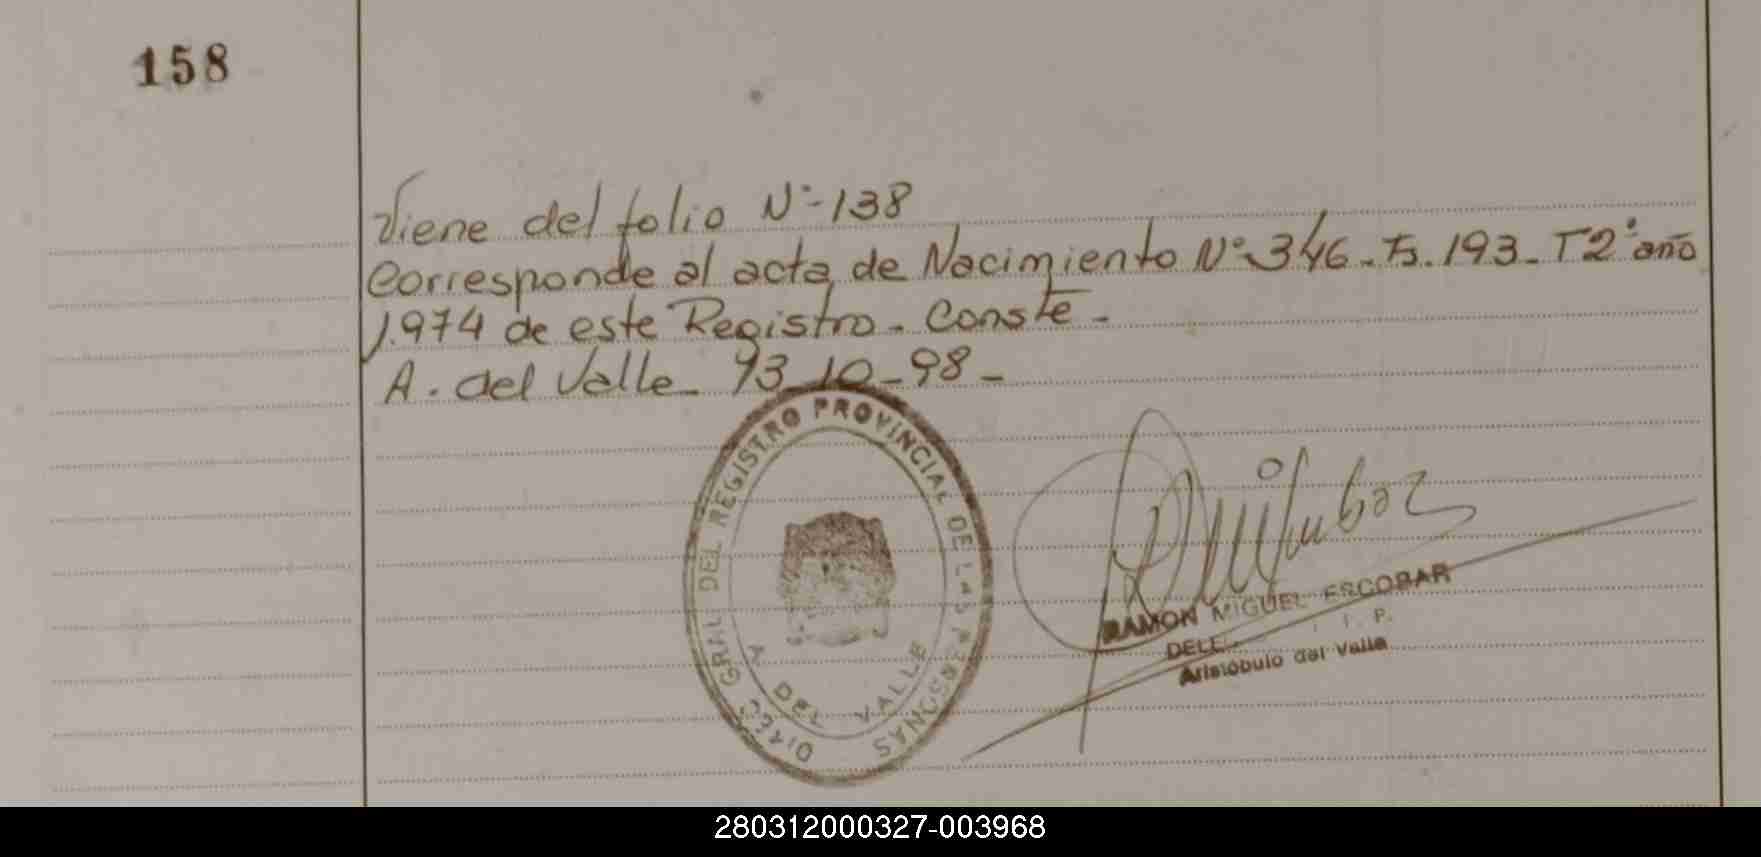 158
Viene del folio N°-138
Corresponde al acta de Nacimiento N°-346-Fs.193-T2° año
1.974 de este Registro. Conste-
A. del Valle 13-10-98-
DIREC. GRAL. DEL REGISTRO PROVINCIAL DE LAS PERSONAS
A DEL VALLE
RAMON MIGUEL ESCOBAR
I. P.
Aristóbulo del Valle
280312000327-003968